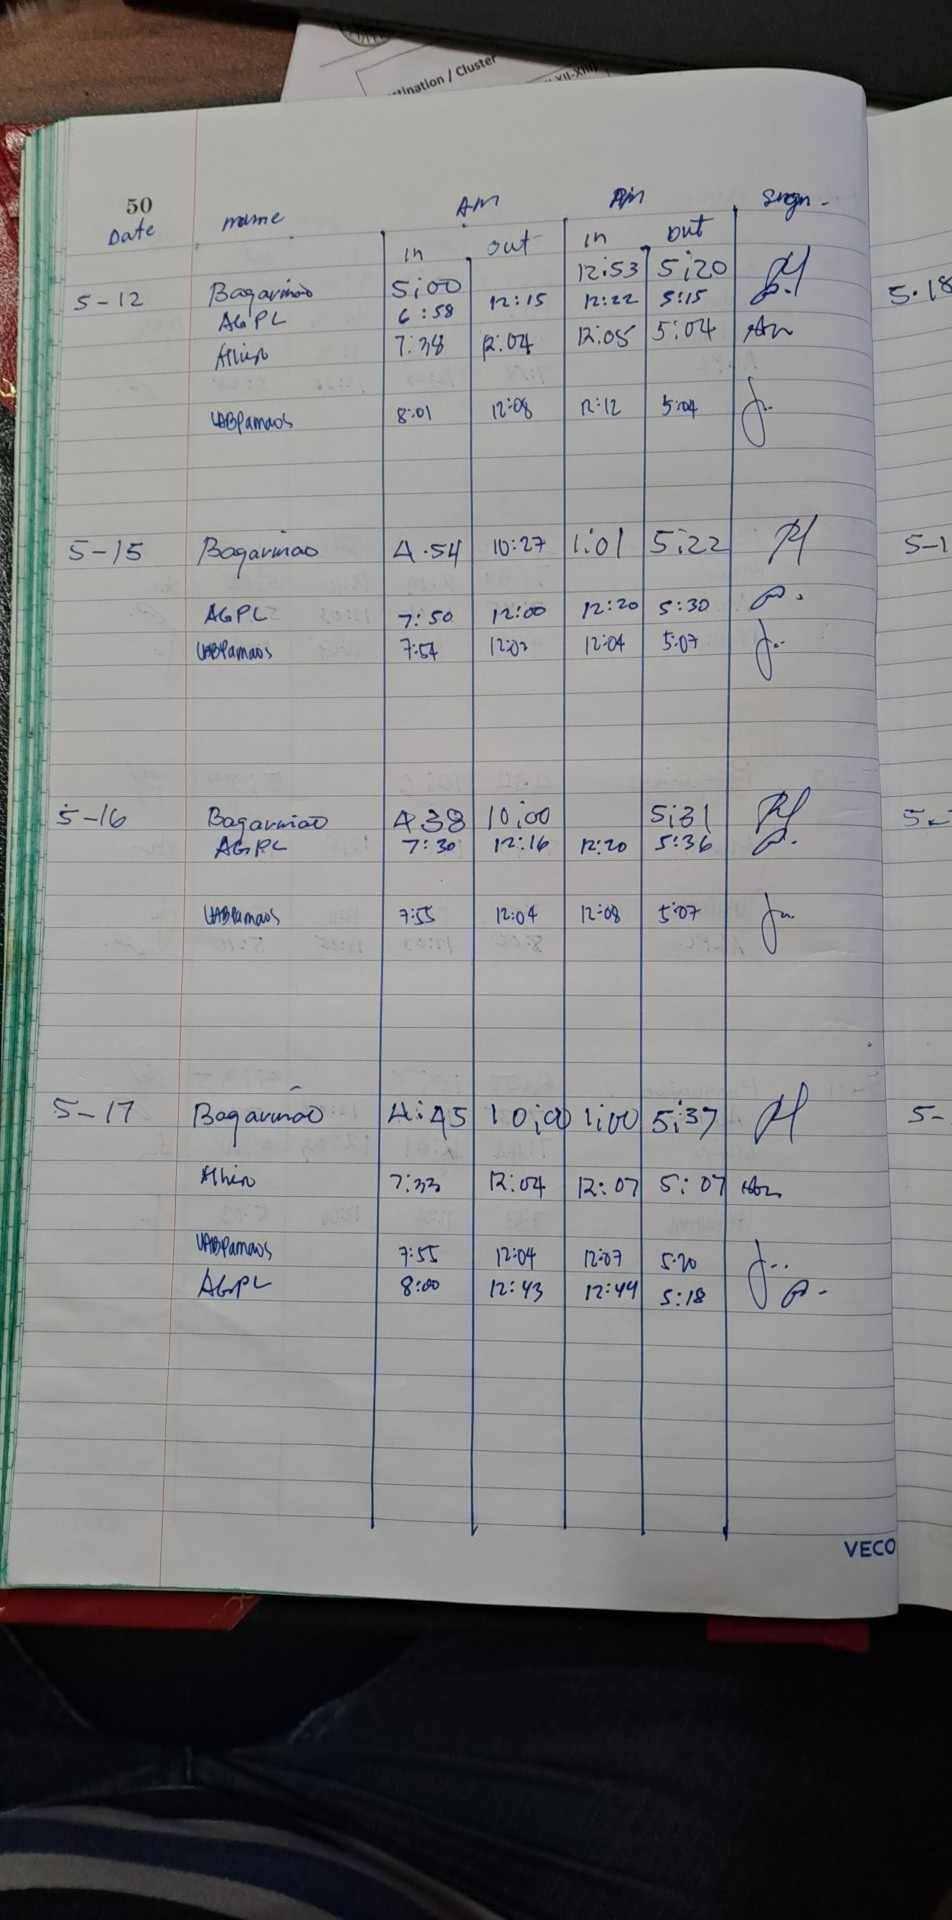 stination / Cluster
XII-XIII)
50
AM PM Sign.
Date name
in out in out
12:53 5:20
5-12 Bagarinao 5:00
AGPL 6:58 12:15 12:22 5:15
7:38 12:04 12:05 5:04
UABPamaos 8:01 12:08 12:12 5:04
5-15 Bagarinao 4:54 10:27 1:01 5:22
AGPL 7:50 12:00 12:20 5:30
UABPamaos 7:54 12:02 12:04 5:07
5-16 Bagarinao 4:38 10:00 5:31
AGPL 7:30 12:16 12:20 5:36
UABPamaos 7:55 12:04 12:08 5:07
5-17 Bagarinao 4:45 10:00 1:00 5:37
7:33 12:04 12:07 5:07
UABPamaos 7:55 12:04 12:07 5:20
AGPL 8:00 12:43 12:44 5:18
VECO
5-18
5-1
5-
5-